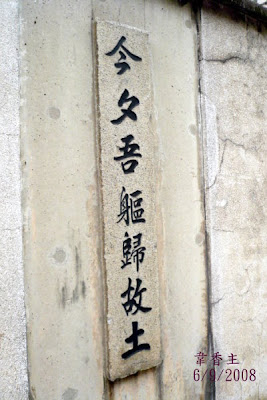 今夕吾軀歸故土
韋香主
6/9/2008